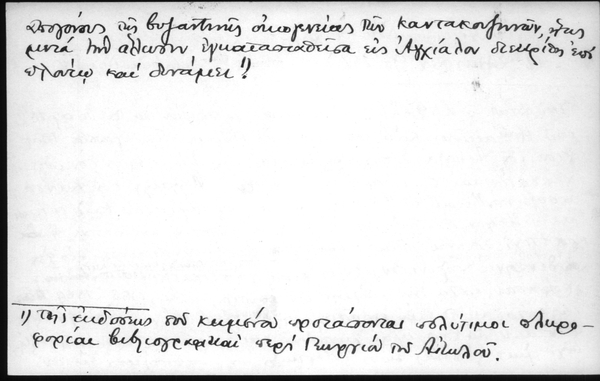 Ἀπογόνους τῆς βυζαντινῆς οἰκογενείας τῶν Καντακουζηνῶν, ἥτις
μετά τήν ἅλωσιν ἐγκατασταθεῖσα εἰς Ἀγχίαλον διεκρίθη ἐπί
πλούτῳ καί δυνάμει 1)
1) Τῆς ἐκδόσεως τοῦ κειμένου προτάσσονται πολύτιμοι πληρο-
φορίαι βιβλιογραφικαί περί Γεωργίου τοῦ Αἰτωλοῦ.